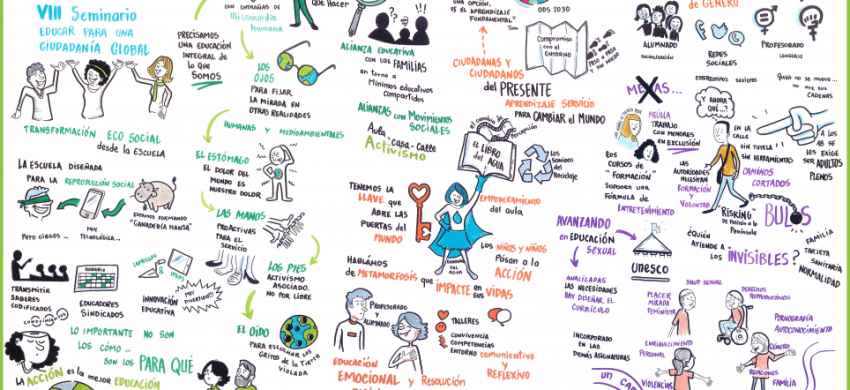 VIII Seminario
EDUCAR PARA UNA
CIUDADANÍA GLOBAL
TRANSFORMACIÓN ECO SOCIAL
desde la Escuela
LA ESCUELA DISEÑADA
PARA LA REPRODUCCIÓN SOCIAL
Pero ciegos...
MUY
TECNOLÓGICA...
ESTAMOS FORMANDO
"GANADERÍA MANSA"
TRANSMITIR
SABERES
CODIFICADOS
CONOCIMIENTOS
HORARIO
EDUCADORES
SINDICADOS
LADRILLOS
INNOVACIÓN
EDUCATIVA
¡MUY
DIVERTIDO!!!
LO IMPORTANTE NO SON
LOS CÓMO..
SON LOS PARA QUÉ
LA ACCIÓN es la mejor EDUCACIÓN
CON ENTRAÑAS DE
Misericordia
humana
PRECISAMOS
UNA EDUCACIÓN
INTEGRAL DE
LO QUE
SOMOS
LOS
OJOS
PARA FIJAR
LA MIRADA EN
OTRAS REALIDADES
HUMANAS Y MEDIOAMBIENTALES
EL ESTÓMAGO
EL DOLOR DEL
MUNDO ES
NUESTRO DOLOR
LAS MANOS
PROACTIVAS
PARA EL
SERVICIO
LOS PIES
ACTIVISMO
ASOCIADO,
NO POR LIBRE
EL OÍDO
PARA ESCUCHAR LOS
GRITOS DE LA TIERRA
VIOLADA
QUE HACER
ALIANZA EDUCATIVA
CON LAS FAMILIAS
en torno a
Mínimos educativos
Compartidos
ALIANZAS con MOVIMIENTOS
SOCIALES
Aula - casa - calle
ACTIVISMO
TENEMOS LA
LLAVE QUE
ABRE LAS
PUERTAS DEL
MUNDO
HABLAMOS
DE METAMORFOSIS que
IMPACTE EN sus
VIDAS
PROFESORADO
y
ALUMNADO
EDUCACIÓN
EMOCIONAL Y RESOLUCIÓN
TALLERES
CONVIVENCIA
COMPETENCIAS
ENTORNO
comunicativo
y
REFLEXIVO
UNA OPCIÓN,
ES EL APRENDIZAJE
FUNDAMENTAL"
ODS 2030
CIUDADANAS Y
CIUDADANOS
del PRESENTE
Compromiso
con el
ENTORNO
PASO a PASO
SIN MIEDO
APRENDIZAJE SERVICIO
PARA CAMBIAR el MUNDO
el cambio de
Percepción
EL LIBRO
DEL AGUA
Los
Sonidos
del
Reciclaje
EMPODERAMIENTO
del aula
GUARDIANA
DEL AGUA
LOS NIÑOS Y NIÑAS
PASAN A LA
ACCIÓN
AVANZANDO
en EDUCACIÓN
SEXUAL
ANALIZADAS
LAS NECESIDADES
HAY DISEÑAR EL
CURRÍCULO
INCORPORADO
EN LAS
DEMÁS ASIGNATURAS
UNESCO
PLACER
MIRADA
FEMINISTA
ENRIQUECIMIENTO
PERSONAL
VIOLENCIAS
SALUD SEXUAL
DERECHOS
REPRODUCTIVOS
PORNOGRAFÍA
AUTOCONOCIMIENTO
GÉNERO
RELACIONES
FAMILIA
de GÉNERO
ALUMNADO
SOCIALIZACIÓN
REDES
SOCIALES
ESTEREOTIPOS SEXISTAS
PROFESORADO
LENGUAJE
Quien no se mueve...
no oye sus
CADENAS
MENAS...
MELILLA
TRABAJO
CON MENORES
EN EXCLUSIÓN
Los CURSOS de
"FORMACIÓN"
SUPONEN UNA
FÓRMULA DE
ENTRETENIMIENTO
Y AHORA
QUÉ...?
EN LA
CALLE
SIN TUTELA
SIN HERRAMIENTAS
LAS
AUTORIDADES
NECESITAN
FORMACIÓN
Y VOLUNTAD
CAMINOS
CORTADOS
A LOS 18
SE LES
EXIGE
SER ADULTOS
PLENOS
"RISKING"
DE Pasar a la
Península
BULOS
¿QUIÉN
ATIENDE A
LOS INVISIBLES?
FAMILIA
TARJETA
SANITARIA
NORMALIDAD